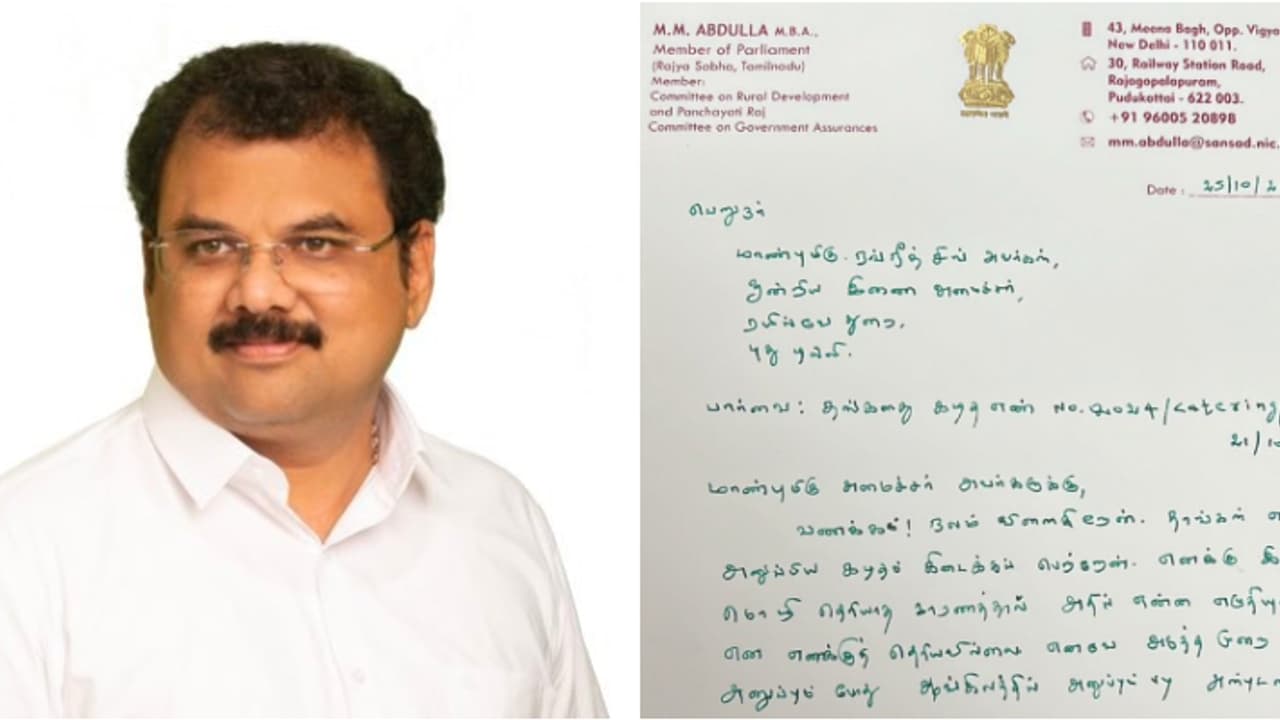 M.M. ABDULLA M.B.A.,
Member of Parliament
(Rajya Sabha, Tamilnadu)
Member:
Committee on Rural Development
and Panchayati Raj
Committee on Government Assurances
43, Meena Bagh, Opp. Vigya
New Delhi - 110 011.
30, Railway Station Road,
Rajagopalapuram,
Pudukottai - 622 003.
+91 96005 20898
mm.abdulla@sansad.nic.
Date : 25/10/2
பெறுநர்
மாண்புமிகு. ரவ்நீத் சிங் அவர்கள்,
ஒன்றிய இணை அமைச்சர்,
ரயில்வே துறை,
புது டில்லி.
பார்வை: தங்களது கடித எண் No.2024/Catering/
21/10
மாண்புமிகு அமைச்சர் அவர்களுக்கு,
வணக்கம்! நலம் விளைகிறேன். தாங்கள் எ
அனுப்பிய கடிதம் கிடைக்கப் பெற்றேன். எனக்கு இ
மொழி தெரியாத காரணத்தால் அதில் என்ன எழுதியு
என எனக்குத் தெரியவில்லை எனவே அடுத்த முறை
அனுப்பும் போது ஆங்கிலத்தில் அனுப்பும் படி அன்புட